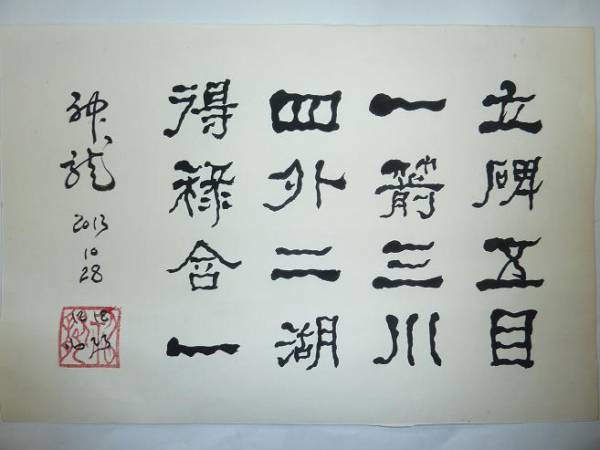 立碑五目
一箭三川
四外二湖
得祿合一
神龍
2013
10
28